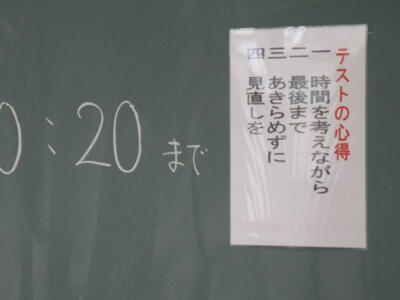 0:20まで
テストの心得
一 時間を考えながら
二 最後まで
三 あきらめずに
四 見直しを